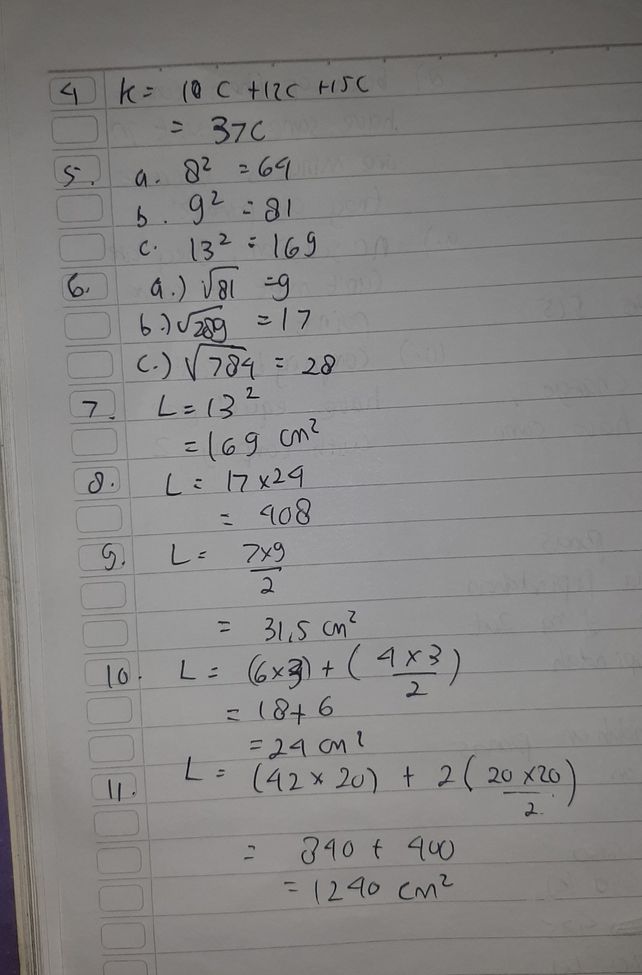 4 K= 10 C +12C +15C
= 37C
5. a. 8² = 64
b. 9² = 81
c. 13² = 169
6. a.) √81 =9
b.) √289 = 17
c.) √784 = 28
7. L = 13²
= 169 cm²
8. L = 17 x 24
= 408
9. L = 7x9/2
= 31,5 cm²
10. L = (6x3) + (4 x 3/2)
= 18 + 6
= 24 cm²
11. L = (42 x 20) + 2(20 x20/2)
= 840 + 400
= 1240 cm²